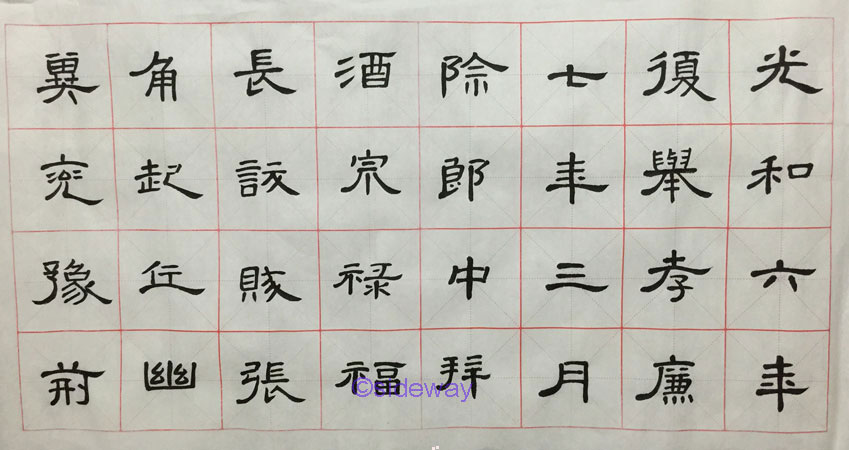 光和六年
復舉孝廉
七年三月
除郎中拜
酒泉祿福
長訞賊張
角起兵幽
冀兗豫荊
©sideway